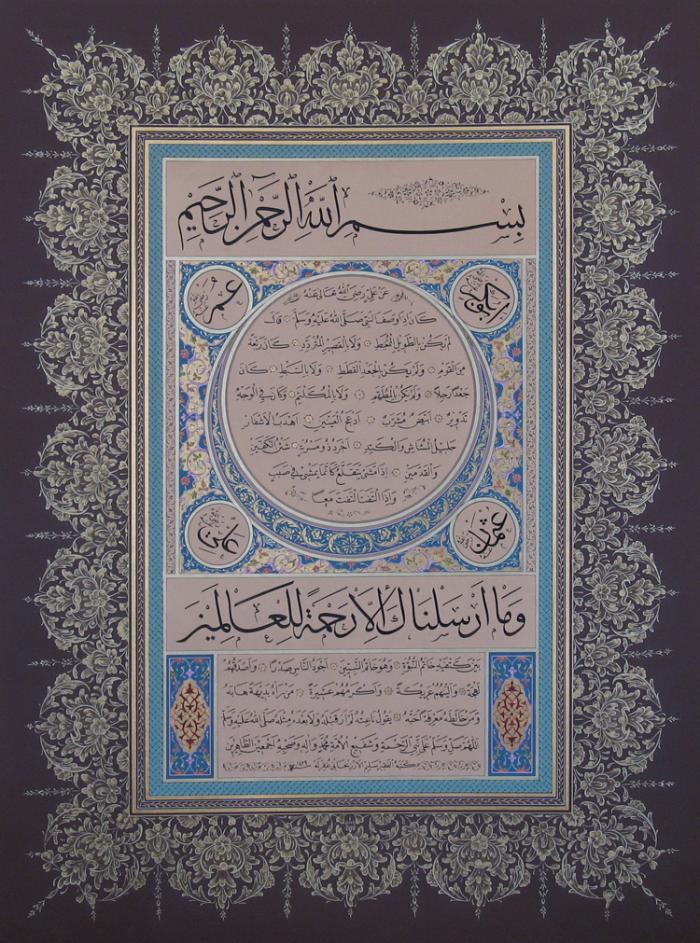 بسم الله الرحمن الرحيم
ابو بكر
عمر
عن علي رضي الله تعالى عنه
كان اذا وصف النبي صلى الله عليه وسلم قال
لم يكن بالطويل الممغط ولا بالقصير المتردد كان ربعة
من القوم ولم يكن بالجعد القطط ولا بالسبط كان
جعدا رجلا ولم يكن بالمطهم ولا بالمكلثم وكان في الوجه
تدوير ابيض مشرب ادعج العينين اهدب الاشفار
جليل المشاش والكتد اجرد ذو مسربة شثن الكفين
والقدمين اذا مشى يتقلع كانما يمشي في صبب
واذا التفت التفت معا
عثمان
علي
وما ارسلناك الا رحمة للعالمين
بين كتفيه خاتم النبوة وهو خاتم النبيين اجود الناس صدرا واصدقهم
لهجة والينهم عريكة واكرمهم عشيرة من رآه بديهة هابه
ومن خالطه معرفة احبه يقول ناعته لم ار قبله ولا بعده مثله صلى الله عليه وسلم
اللهم صل وسلم على نبي الرحمة وشفيع الامة محمد وآله وصحبه اجمعين الطاهرين
كتبه الفقير